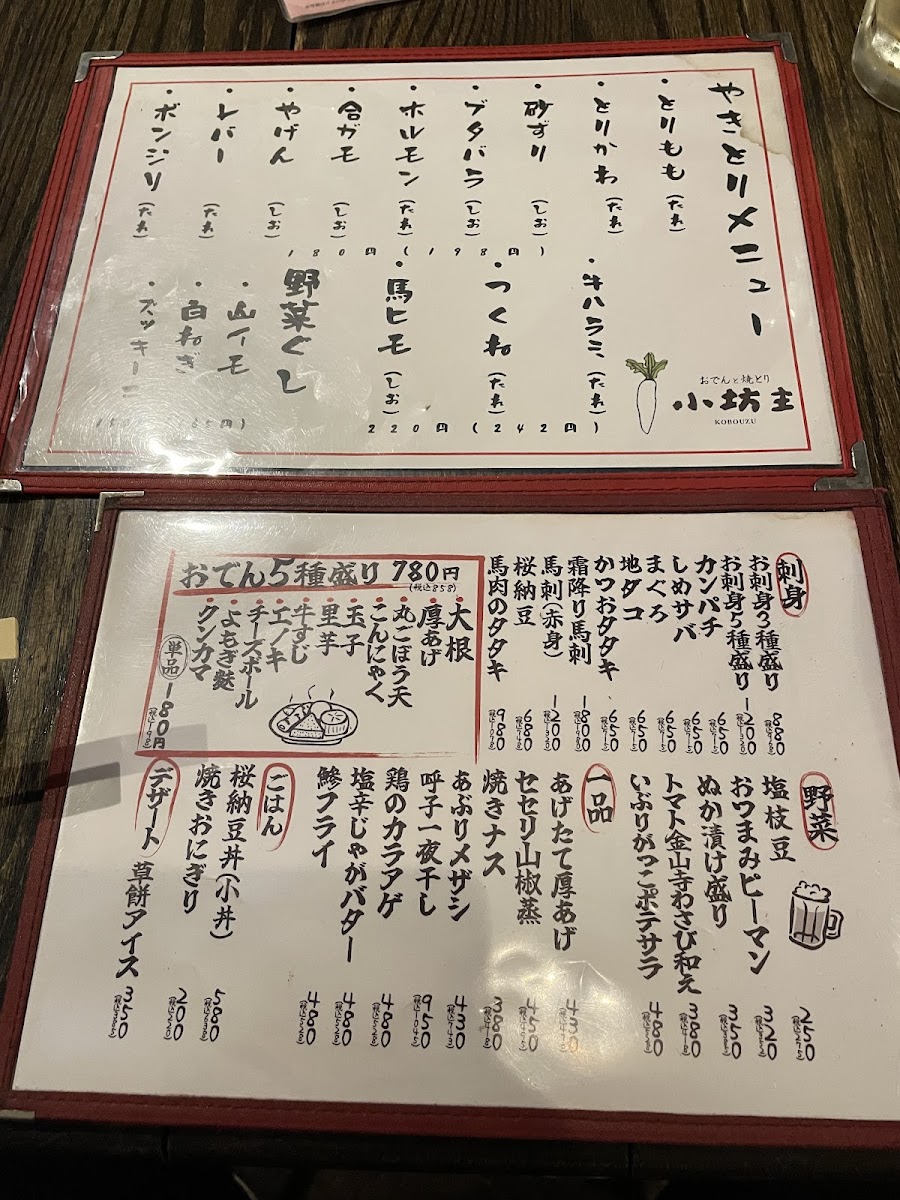 やきとりメニュー
・とりもも(たれ)
・とりかわ(たれ)
・砂ずり(しお)
・ブタバラ(しお)
・ホルモン(たれ)
・合ガモ(しお)
・やげん(しお)
・レバー(たれ)
・ボンジリ(たれ)
180円(198円)
・牛ハラミ(たれ)
・つくね(たれ)
・馬ヒモ(しお)
220円(242円)
野菜ぐし
・山イモ
・白ねぎ
・ズッキーニ
おでんと焼とり
小坊主
KOBOUZU
刺身
お刺身3種盛り 880
お刺身5種盛り 1200
カンパチ 650
しめサバ 650
まぐろ 650
地ダコ 650
かつおタタキ 650
霜降り馬刺 1800
馬刺(赤身) 1200
桜納豆 680
馬肉のタタキ 980
おでん5種盛り 780円
(税込858)
・大根
・厚あげ
・丸ごぼう天
・こんにゃく
・玉子
・里芋
・牛すじ
・エノキ
・チーズボール
・よもぎ麩
・クンカマ
単品 180円
(税込198)
野菜
塩枝豆 250
おつまみピーマン 320
ぬか漬け盛り 350
トマト金山寺わさび和え 380
いぶりがっこポテサラ 480
一品
あげたて厚あげ 430
セセリ山椒蒸 450
焼きナス 380
あぶりメザシ 430
呼子一夜干し 950
鶏のカラアゲ 480
塩辛じゃがバター 480
鯵フライ 480
ごはん
桜納豆丼(小丼) 580
焼きおにぎり 200
デザート
草餅アイス 350